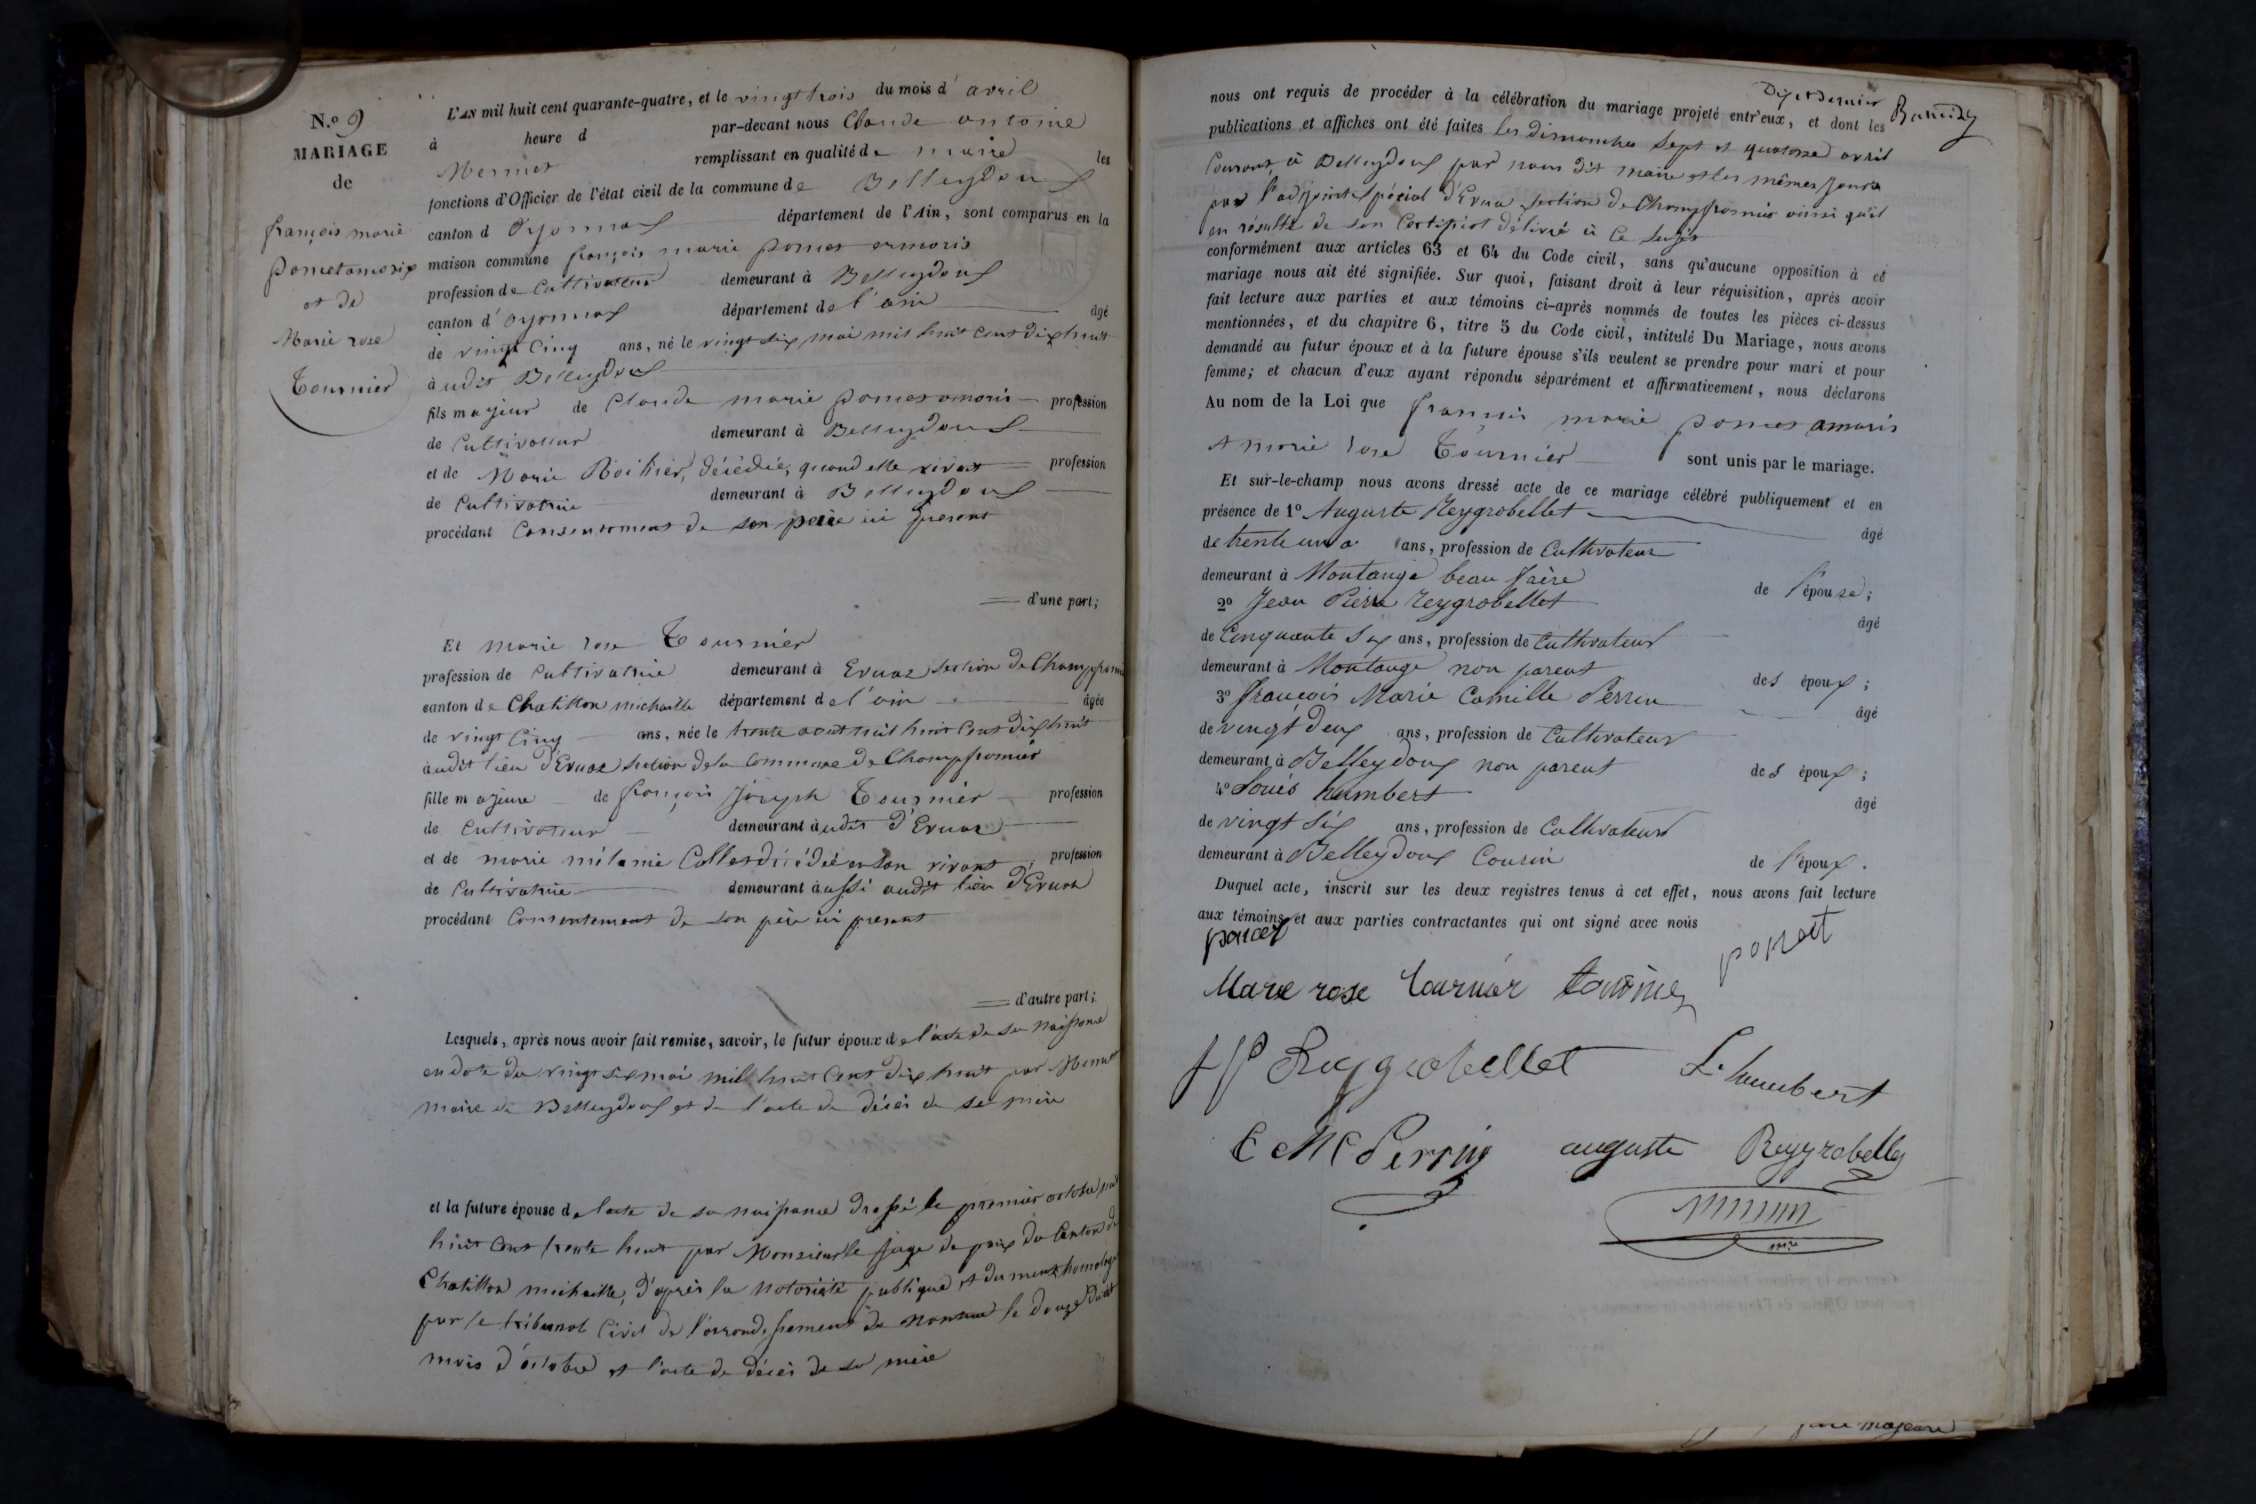 N.o 9
MARIAGE
de
françois marie
pometamorix
et de
Marie rose
Tournier
L'AN mil huit cent quarante-quatre, et le vingt trois du mois d'avril
à heure d par-devant nous Claude antoine
Mermet remplissant en qualité de maire les
fonctions d'Officier de l'état civil de la commune de Belleydoux
canton d'Oyonnax département de l'Ain, sont comparus en la
maison commune françois marie pomet amoris
profession de Cultivateur demeurant à Belleydoux
canton d'oyonnax département de l'ain âgé
de vingt Cinq ans, né le vingt six mai mil huit cent dix huit
àudit Belleydoux
fils majeur de Claude marie pomet amoris profession
de Cultivateur demeurant à Belleydoux
et de Marie Boithier, décédée, quand elle vivait profession
de Cultivatrice demeurant à Belleydoux
procédant Consentement de son père ici present
d'une part;
Et marie rose Tournier
profession de Cultivatrice demeurant à Evuaz section de Champfromier
canton de Chatillon michaille département de l'ain âgée
de vingt Cinq ans, née le trente août mil huit Cent dix huit
àudit lieu d'Evuaz section de la Commune de Champfromier
fille majeure de françois Joseph Tournier profession
de Cultivateur demeurant àudit d'Evuaz
et de marie mélanie Collet décédée en son vivant profession
de Cultivatrice demeurant àussi audit lieu d'Evuaz
procédant Consentement de son père ici present
d'autre part;
Lesquels, après nous avoir fait remise, savoir, le futur époux de l'acte de sa naissance
en date du vingt six mai mil huit Cent dix huit par Mermet
maire de Belleydoux et de l'acte de décès de sa mère
et la future épouse de l'acte de sa naissance dressé le premier octobre mil
huit Cent trente huit par Monsieur le Juge de paix du Canton de
Chatillon michaille, d'après la notoriété publique, et dument homologué
par le tribunal Civil de l'arrondissement de nantua le douze dudit
mois d'octobre et l'acte de décès de sa mère
nous ont requis de procéder à la célébration du mariage projeté entr'eux, et dont les
publications et affiches ont été faites les dimanches sept et quatorze avril
Courant, à Belleydoux par nous dit maire et les mêmes jours
par l'adjoint spécial d'Evuaz section de Champfromier ainsi qu'il
en résulte de son Certificat délivré à Ce sujet
conformément aux articles 63 et 64 du Code civil, sans qu'aucune opposition à cé
mariage nous ait été signifiée. Sur quoi, faisant droit à leur réquisition, après avoir
fait lecture aux parties et aux témoins ci-après nommés de toutes les pièces ci-dessus
mentionnées, et du chapitre 6, titre 5 du Code civil, intitulé Du Mariage, nous avons
demandé au futur époux et à la future épouse s'ils veulent se prendre pour mari et pour
femme; et chacun d'eux ayant répondu séparément et affirmativement, nous déclarons
Au nom de la Loi que françois marie pomet amoris
et marie rose Tournier sont unis par le mariage.
Et sur-le-champ nous avons dressé acte de ce mariage célébré publiquement et en
présence de 1o Auguste Reygrobellet âgé
de trente un ans, profession de Cultivateur
demeurant à Montange beau frère de l'épouse;
2o Jean Pierre Reygrobellet âgé
de Cinquante Six ans, profession de Cultivateur
demeurant à Montange non parent des époux;
3o françois Marie Camille Perrin âgé
de vingt deux ans, profession de Cultivateur
demeurant à Belleydoux non parent des époux;
4o Louis humbert âgé
de vingt Six ans, profession de Cultivateur
demeurant à Belleydoux Cousin de l'époux.
Duquel acte, inscrit sur les deux registres tenus à cet effet, nous avons fait lecture
aux témoins et aux parties contractantes qui ont signé avec nous
Marie rose tournier tournier
JP Reygrobellet L. humbert
C Perrin auguste Reygrobellet